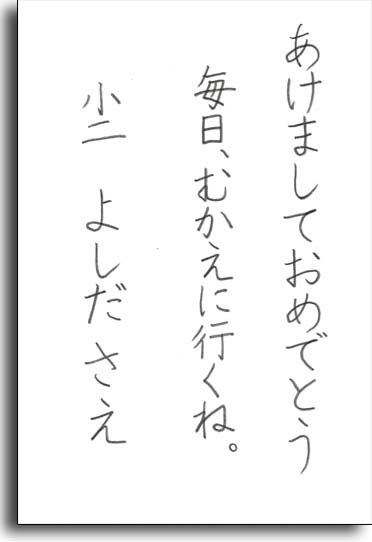 あけましておめでとう
毎日、むかえに行くね。
小二 よしださえ